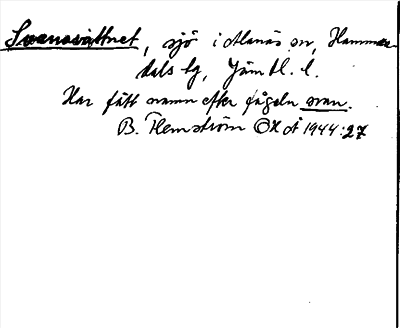 Svanavattnet, sjö i Alanäs sn, Hammer-
dals tg, Jämtl. l.
Har fått namn efter fågeln svan.
B. Flemström OH å 1944:27